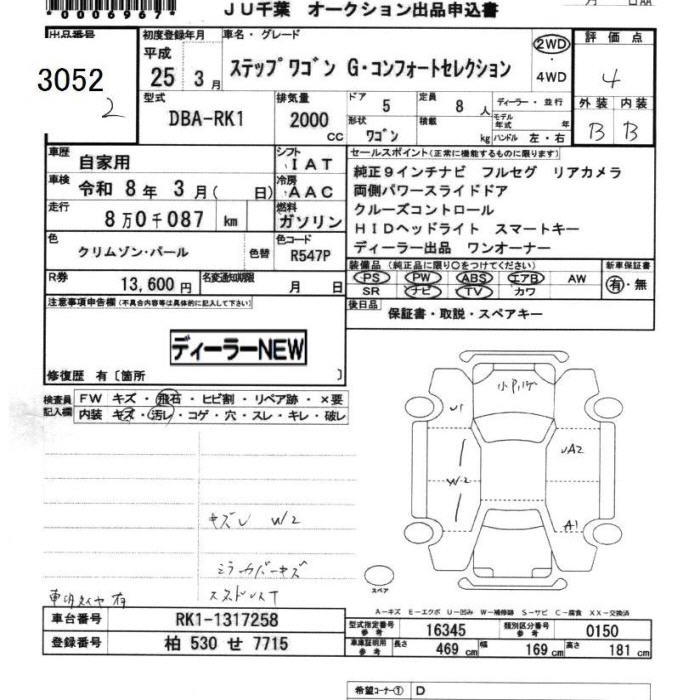 *0006967*
JU千葉 オークション出品申込書
出品番号
3052
2
初度登録年月
平成
25 3月
車名・グレード
ステップワゴン G・コンフォートセレクション
2WD
・
4WD
評価点
4
外装 内装
B B
型式
DBA-RK1
排気量
2000
cc
ドア 5
定員 8人
形状 ワゴン
積載 kg
ディーラー・並行
モデル年式 年
ハンドル 左・右
車歴
自家用
シフト
IAT
車検
令和 8年 3月( 日)
冷房
AAC
走行
8万0千087 km
燃料
ガソリン
セールスポイント(正常に機能するものに限ります)
純正9インチナビ フルセグ リアカメラ
両側パワースライドドア
クルーズコントロール
HIDヘッドライト スマートキー
ディーラー出品 ワンオーナー
色
クリムゾン・パール
色替
色コード
R547P
R券
13,600円
名変通知期限
月 日
装備品(純正品に限り○をつけてください)
PS PW ABS エアB AW
SR ナビ TV カワ
新車保証書
有・無
後日品
保証書・取説・スペアキー
注意事項申告欄(不具合内容等は具体的に記入して下さい)
ディーラーNEW
修復歴 有〔箇所 〕
検査員
記入欄
FW キズ・飛石・ヒビ割・リペア跡・×要
内装 キズ・汚レ・コゲ・穴・スレ・キレ・破レ
U1
W2
UA2
A1
キズU W2
ミラーカバーキズ
スペア
A-キズ E-エクボ U-凹み W-補修跡 S-サビ C-腐食 XX-交換済
車台番号
RK1-1317258
登録番号
柏 530 せ 7715
型式指定番号
参考
16345
類別区分番号
参考
0150
車庫証明用
参考
長さ 469cm
幅 169cm
高さ 181cm
希望コーナー① D